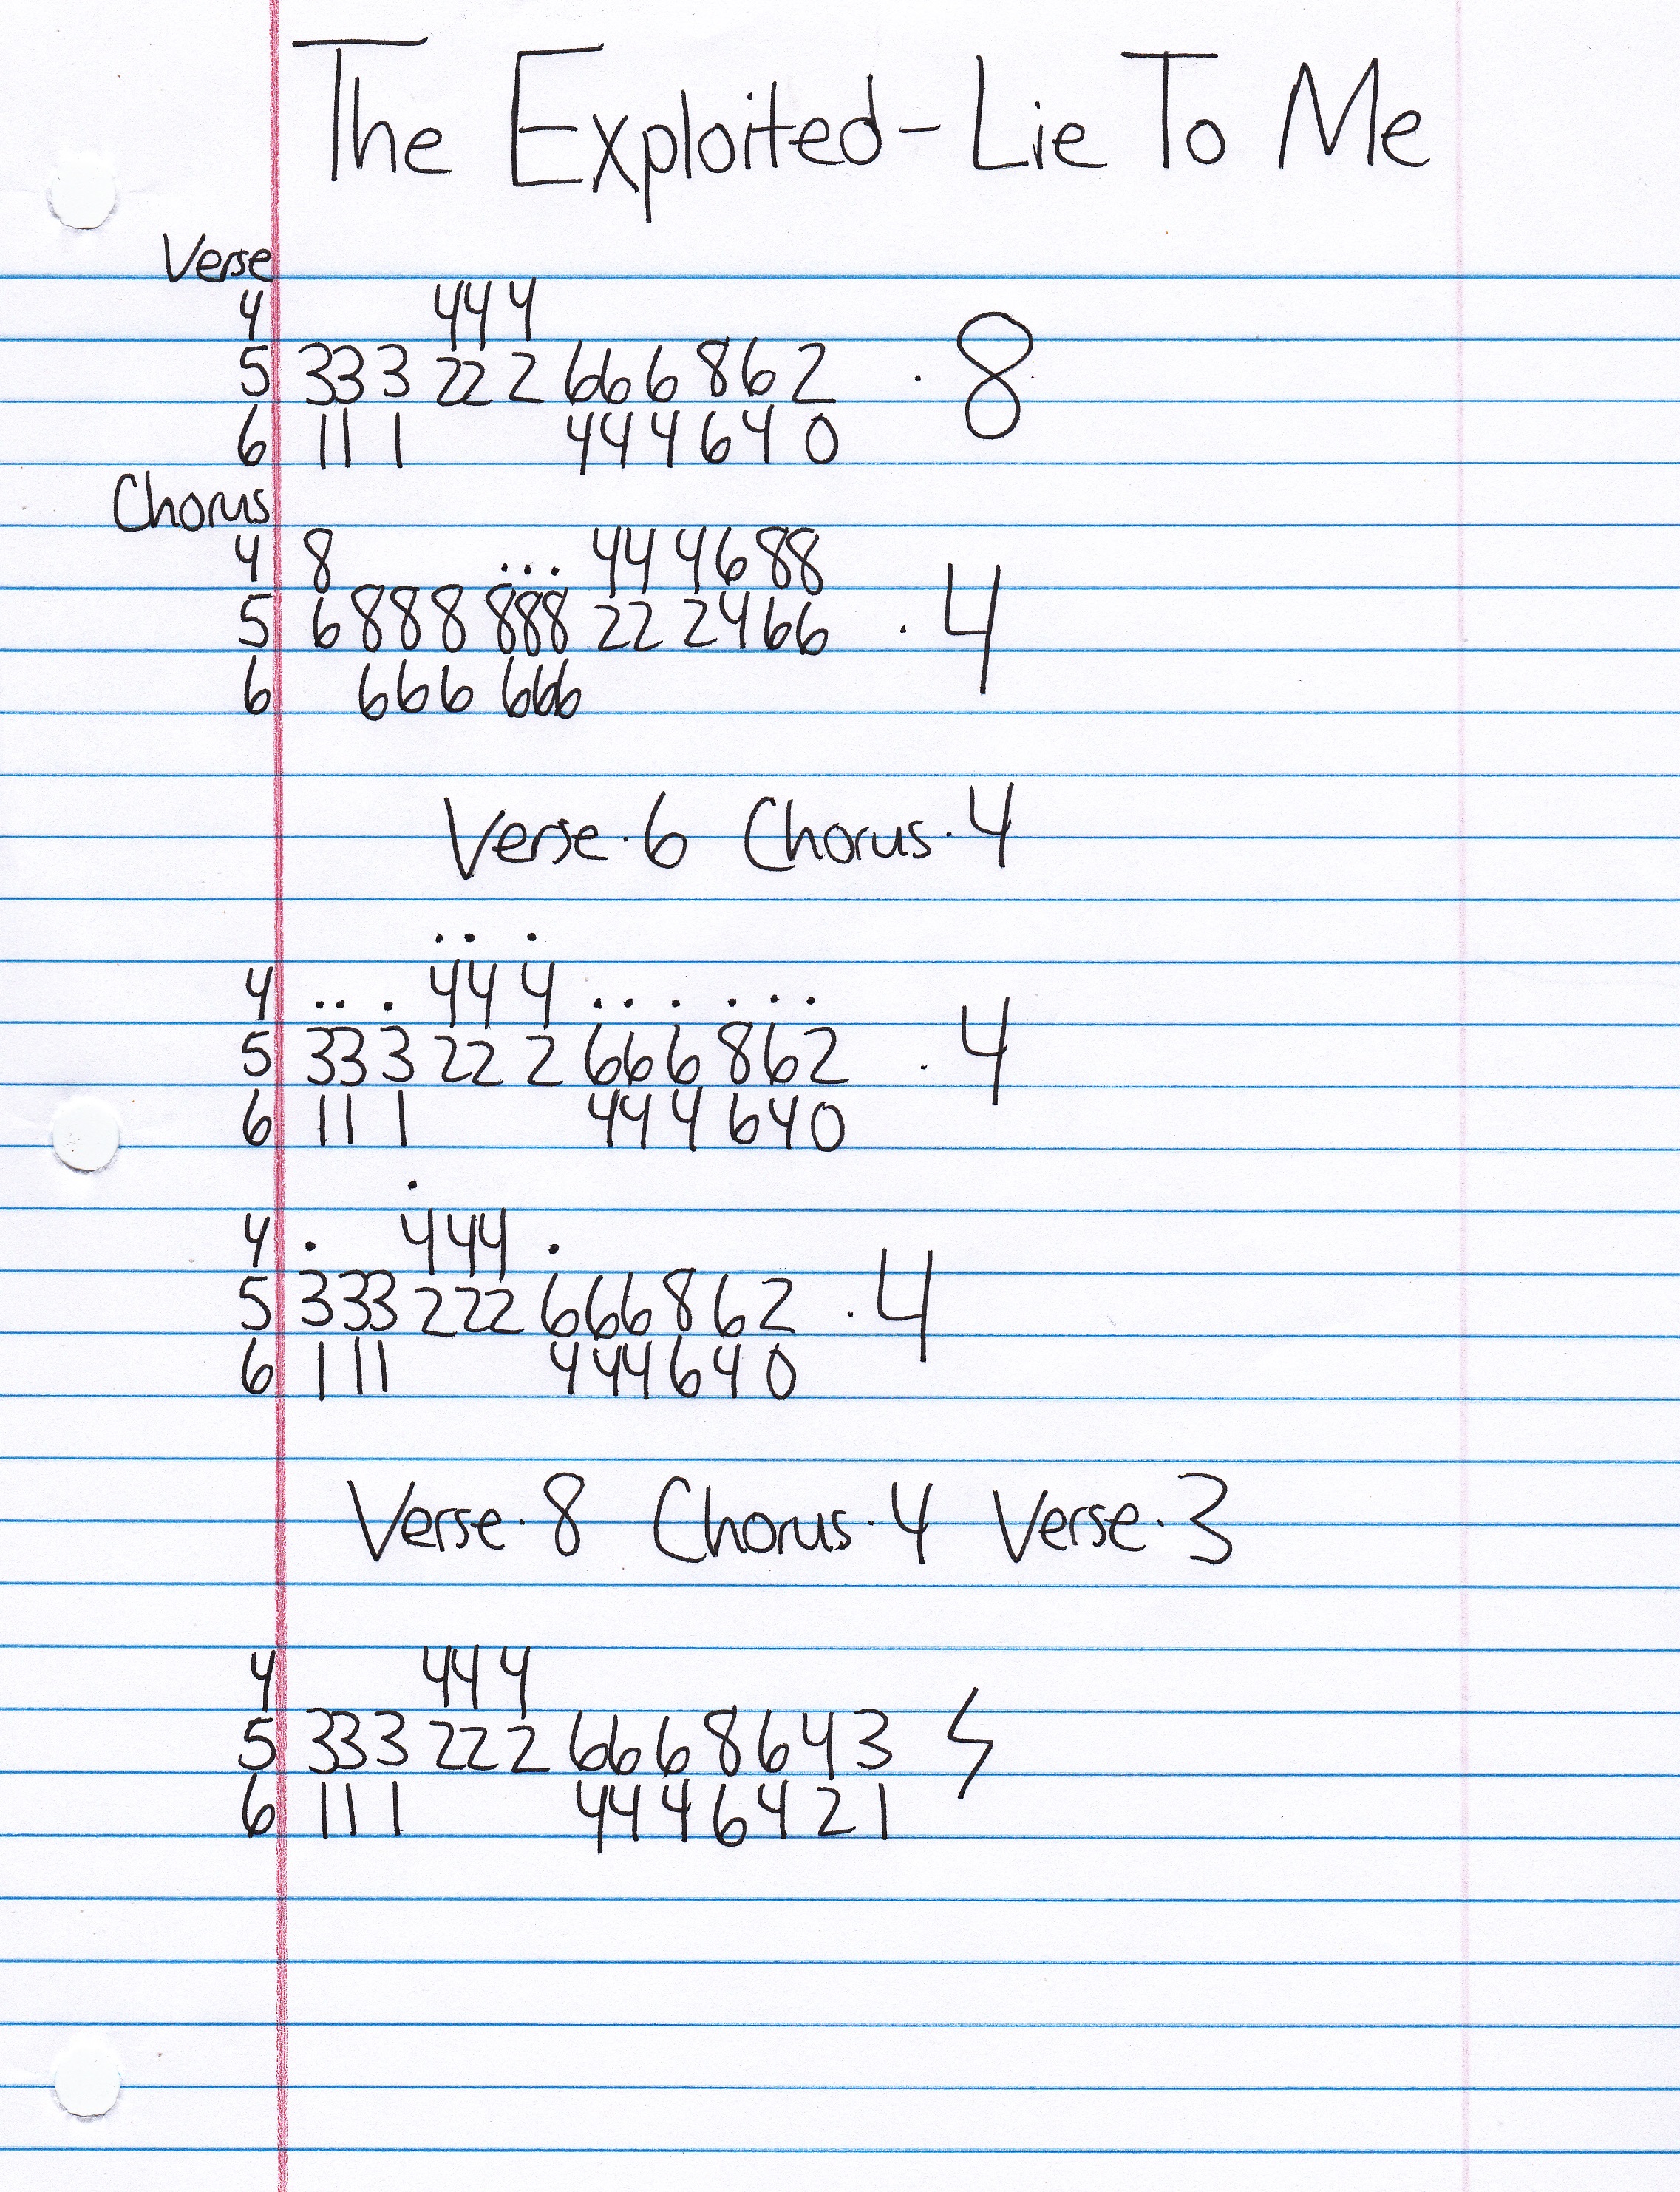 The Exploited - Lie To Me
Verse
4 44 4
5 33 3 22 2 666 862 . 8
6 11 1 444640
Chorus
4 8 ... 44 4688
5 6 888 888 22 2466 . 4
6 666 666
Verse.6 Chorus.4
.. .
4 .. . 44 4 ... ...
5 33 3 22 2 666 862 . 4
6 11 1 444 640
.
4 . 444 .
5 333 222 666862 .4
6 111 444640
Verse.8 Chorus.4 Verse.3
4 44 4
5 33 3 22 2 6668643
6 11 1 4446421